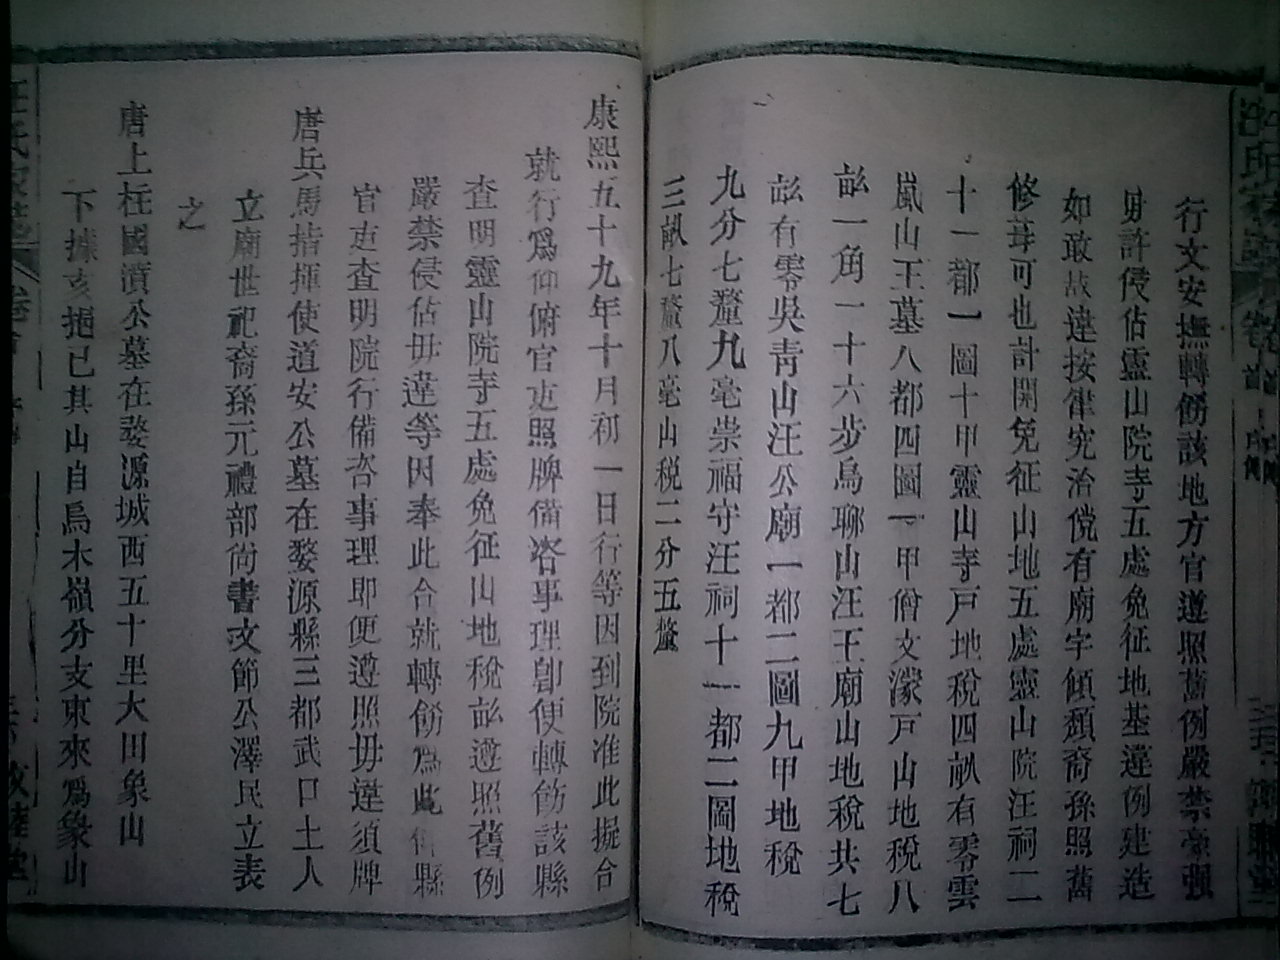 行文安撫轉飭該地方官遵照舊例嚴禁豪强
毋許侵佔靈山院寺五處免征地基違例建造
如敢故違按律究治儻有廟宇傾頹裔孫照舊
修葺可也計開免征山地五處靈山院汪祠二
十一都一圖十甲靈山寺戶地稅四畝有零雲
嵐山王墓八都四圖一甲僧文濛戶山地稅八
畝一角一十六步烏聊山汪王廟山地稅共七
畝有零吳青山汪公廟一都二圖九甲地稅
九分七釐九毫崇福守汪祠十一都二圖地稅
三畝七釐八毫山稅二分五釐
康熙五十九年十月初一日行等因到院准此擬合
就行爲仰俯官吏照牌備咨事理卽便轉飭該縣
查明靈山院寺五處免征山地稅畝遵照舊例
嚴禁侵佔毋違等因奉此合就轉飭爲此仰縣
官吏查明院行備咨事理即便遵照毋違須牌
唐兵馬指揮使道安公墓在婺源縣三都武口土人
立廟世祀裔孫元禮部尚書文節公澤民立表
之
唐上柱國濆公墓在婺源城西五十里大田象山
下據亥挹巳其山自烏木嶺分支東來爲象山
汪氏家乘
卷首